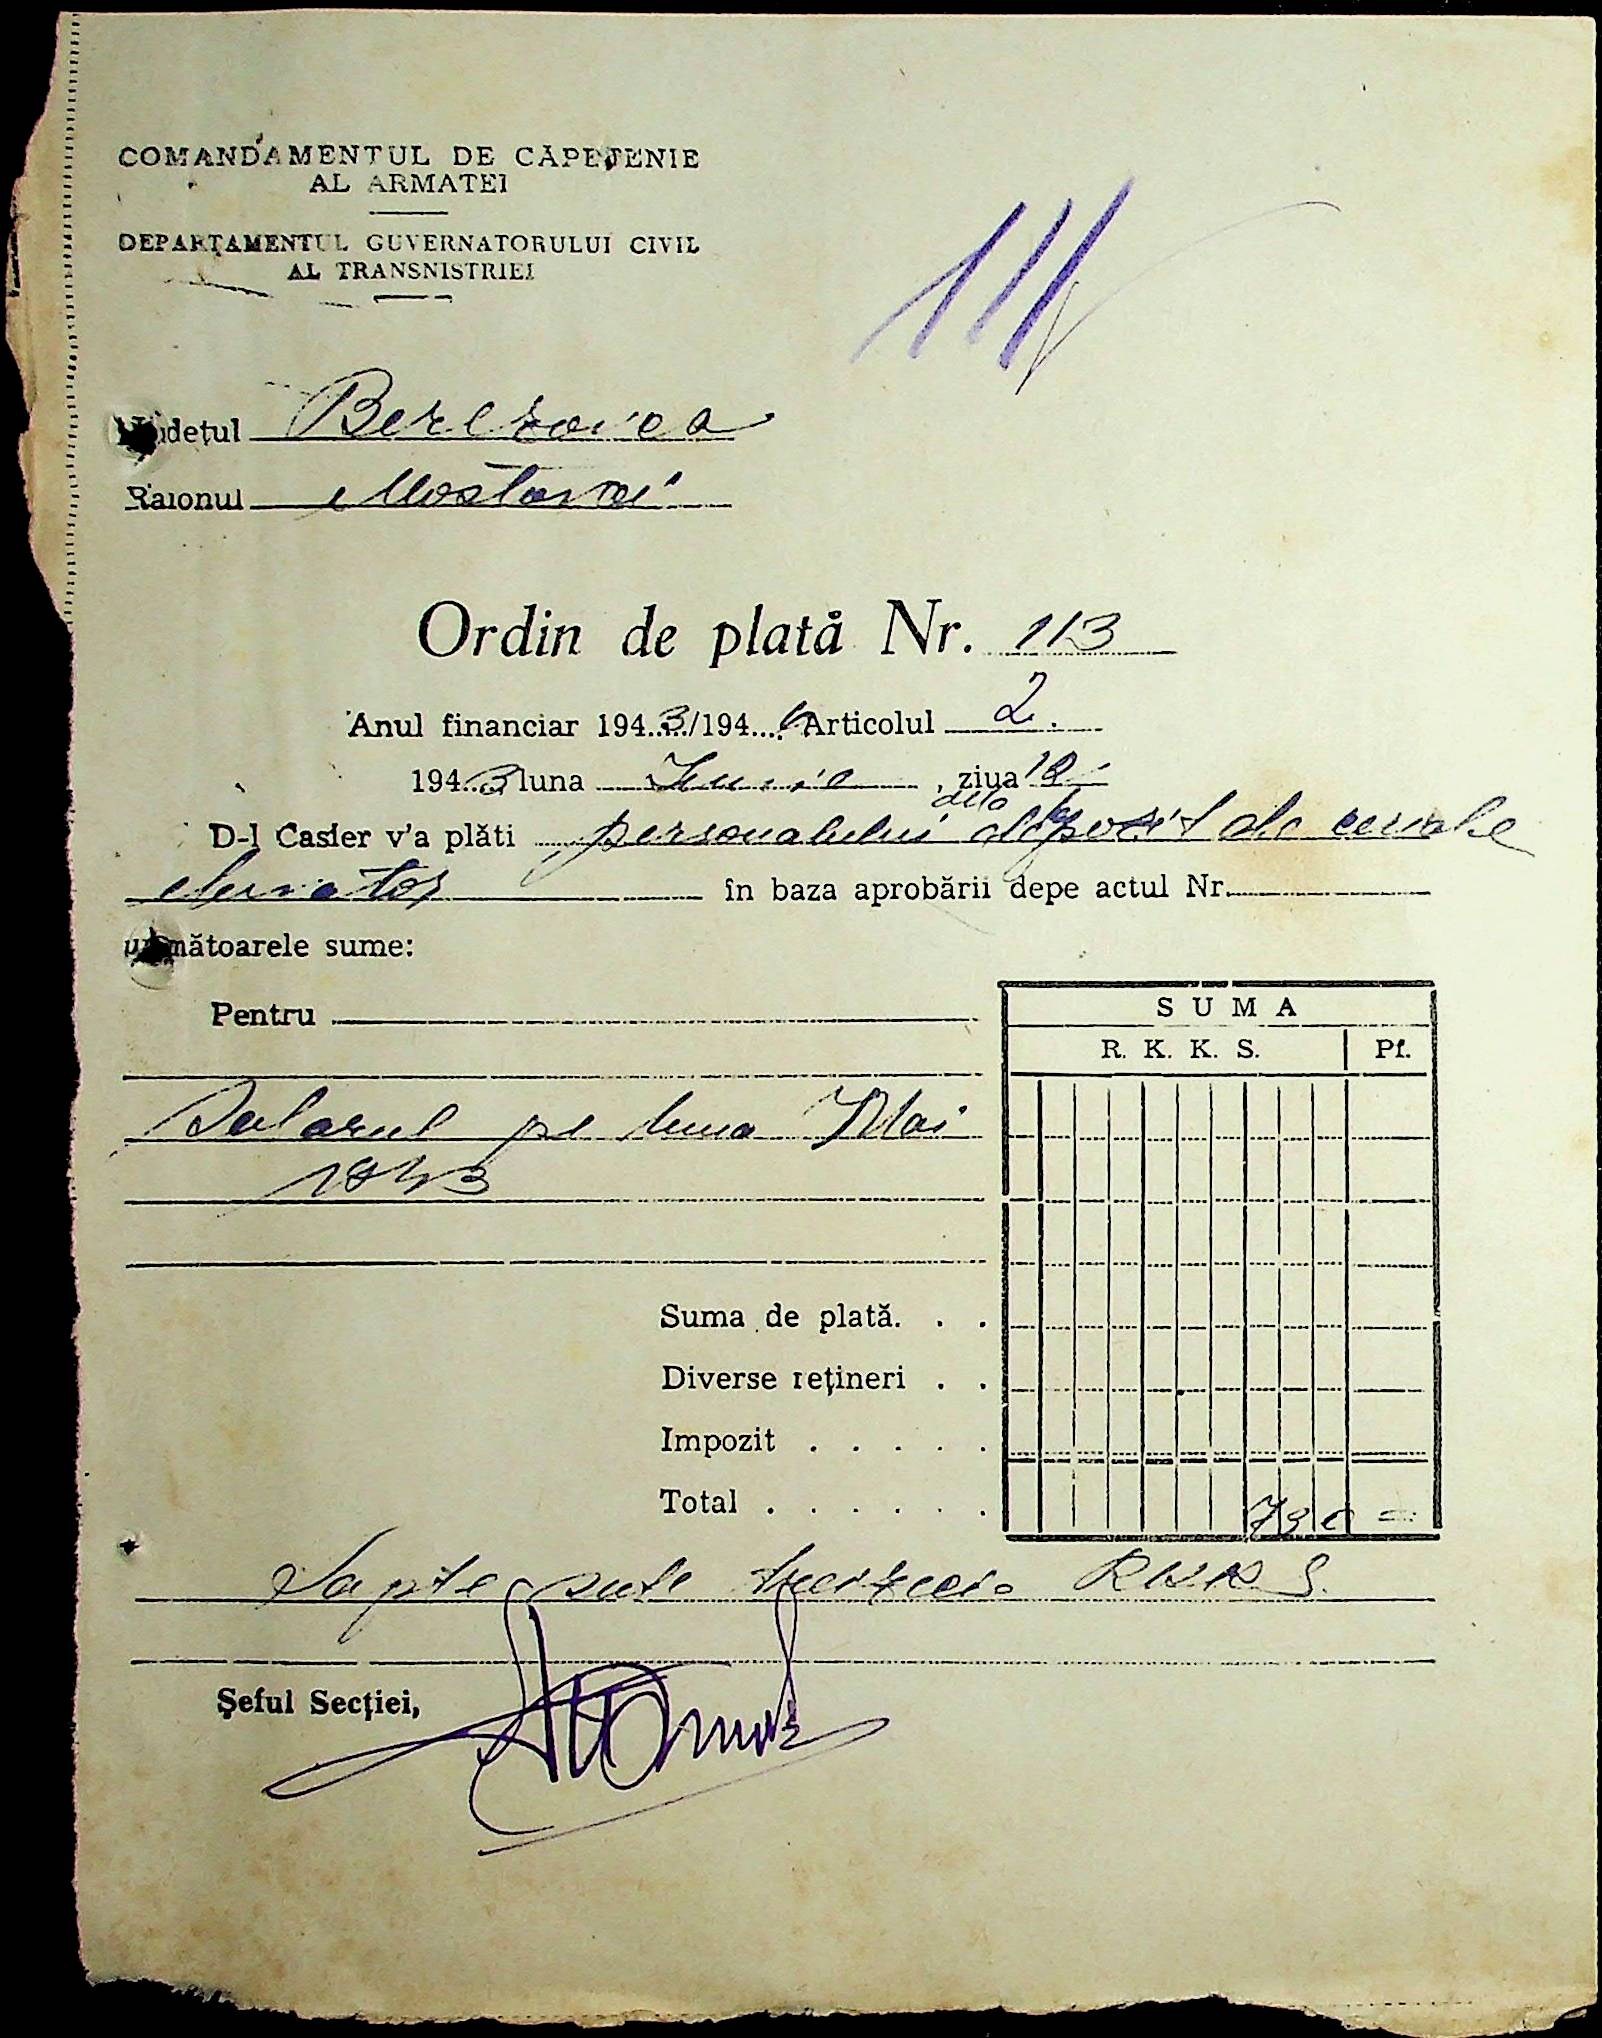 COMANDAMENTUL DE CAPETENIE
AL ARMATEI
DEPARTAMENTUL GUVERNATORULUI CIVIL
AL TRANSNISTRIEI
111
Județul Berezovca
Raionul Mostovoi
Ordin de plată Nr. 113
Anul financiar 1943/194 4 Articolul 2.
1943 luna Iunie, ziua 12
D-l Casier v'a plăti personalului dela depozit de cereale
elevator în baza aprobării depe actul Nr.
următoarele sume:
Pentru
SUMA
R. K. K. S. Pf.
Salarul pe luna Mai
1943
Suma de plată. . .
Diverse rețineri . .
Impozit . . . . .
Total . . . . . . 730 =
Șapte sute treizeci RKKS.
Șeful Secției,